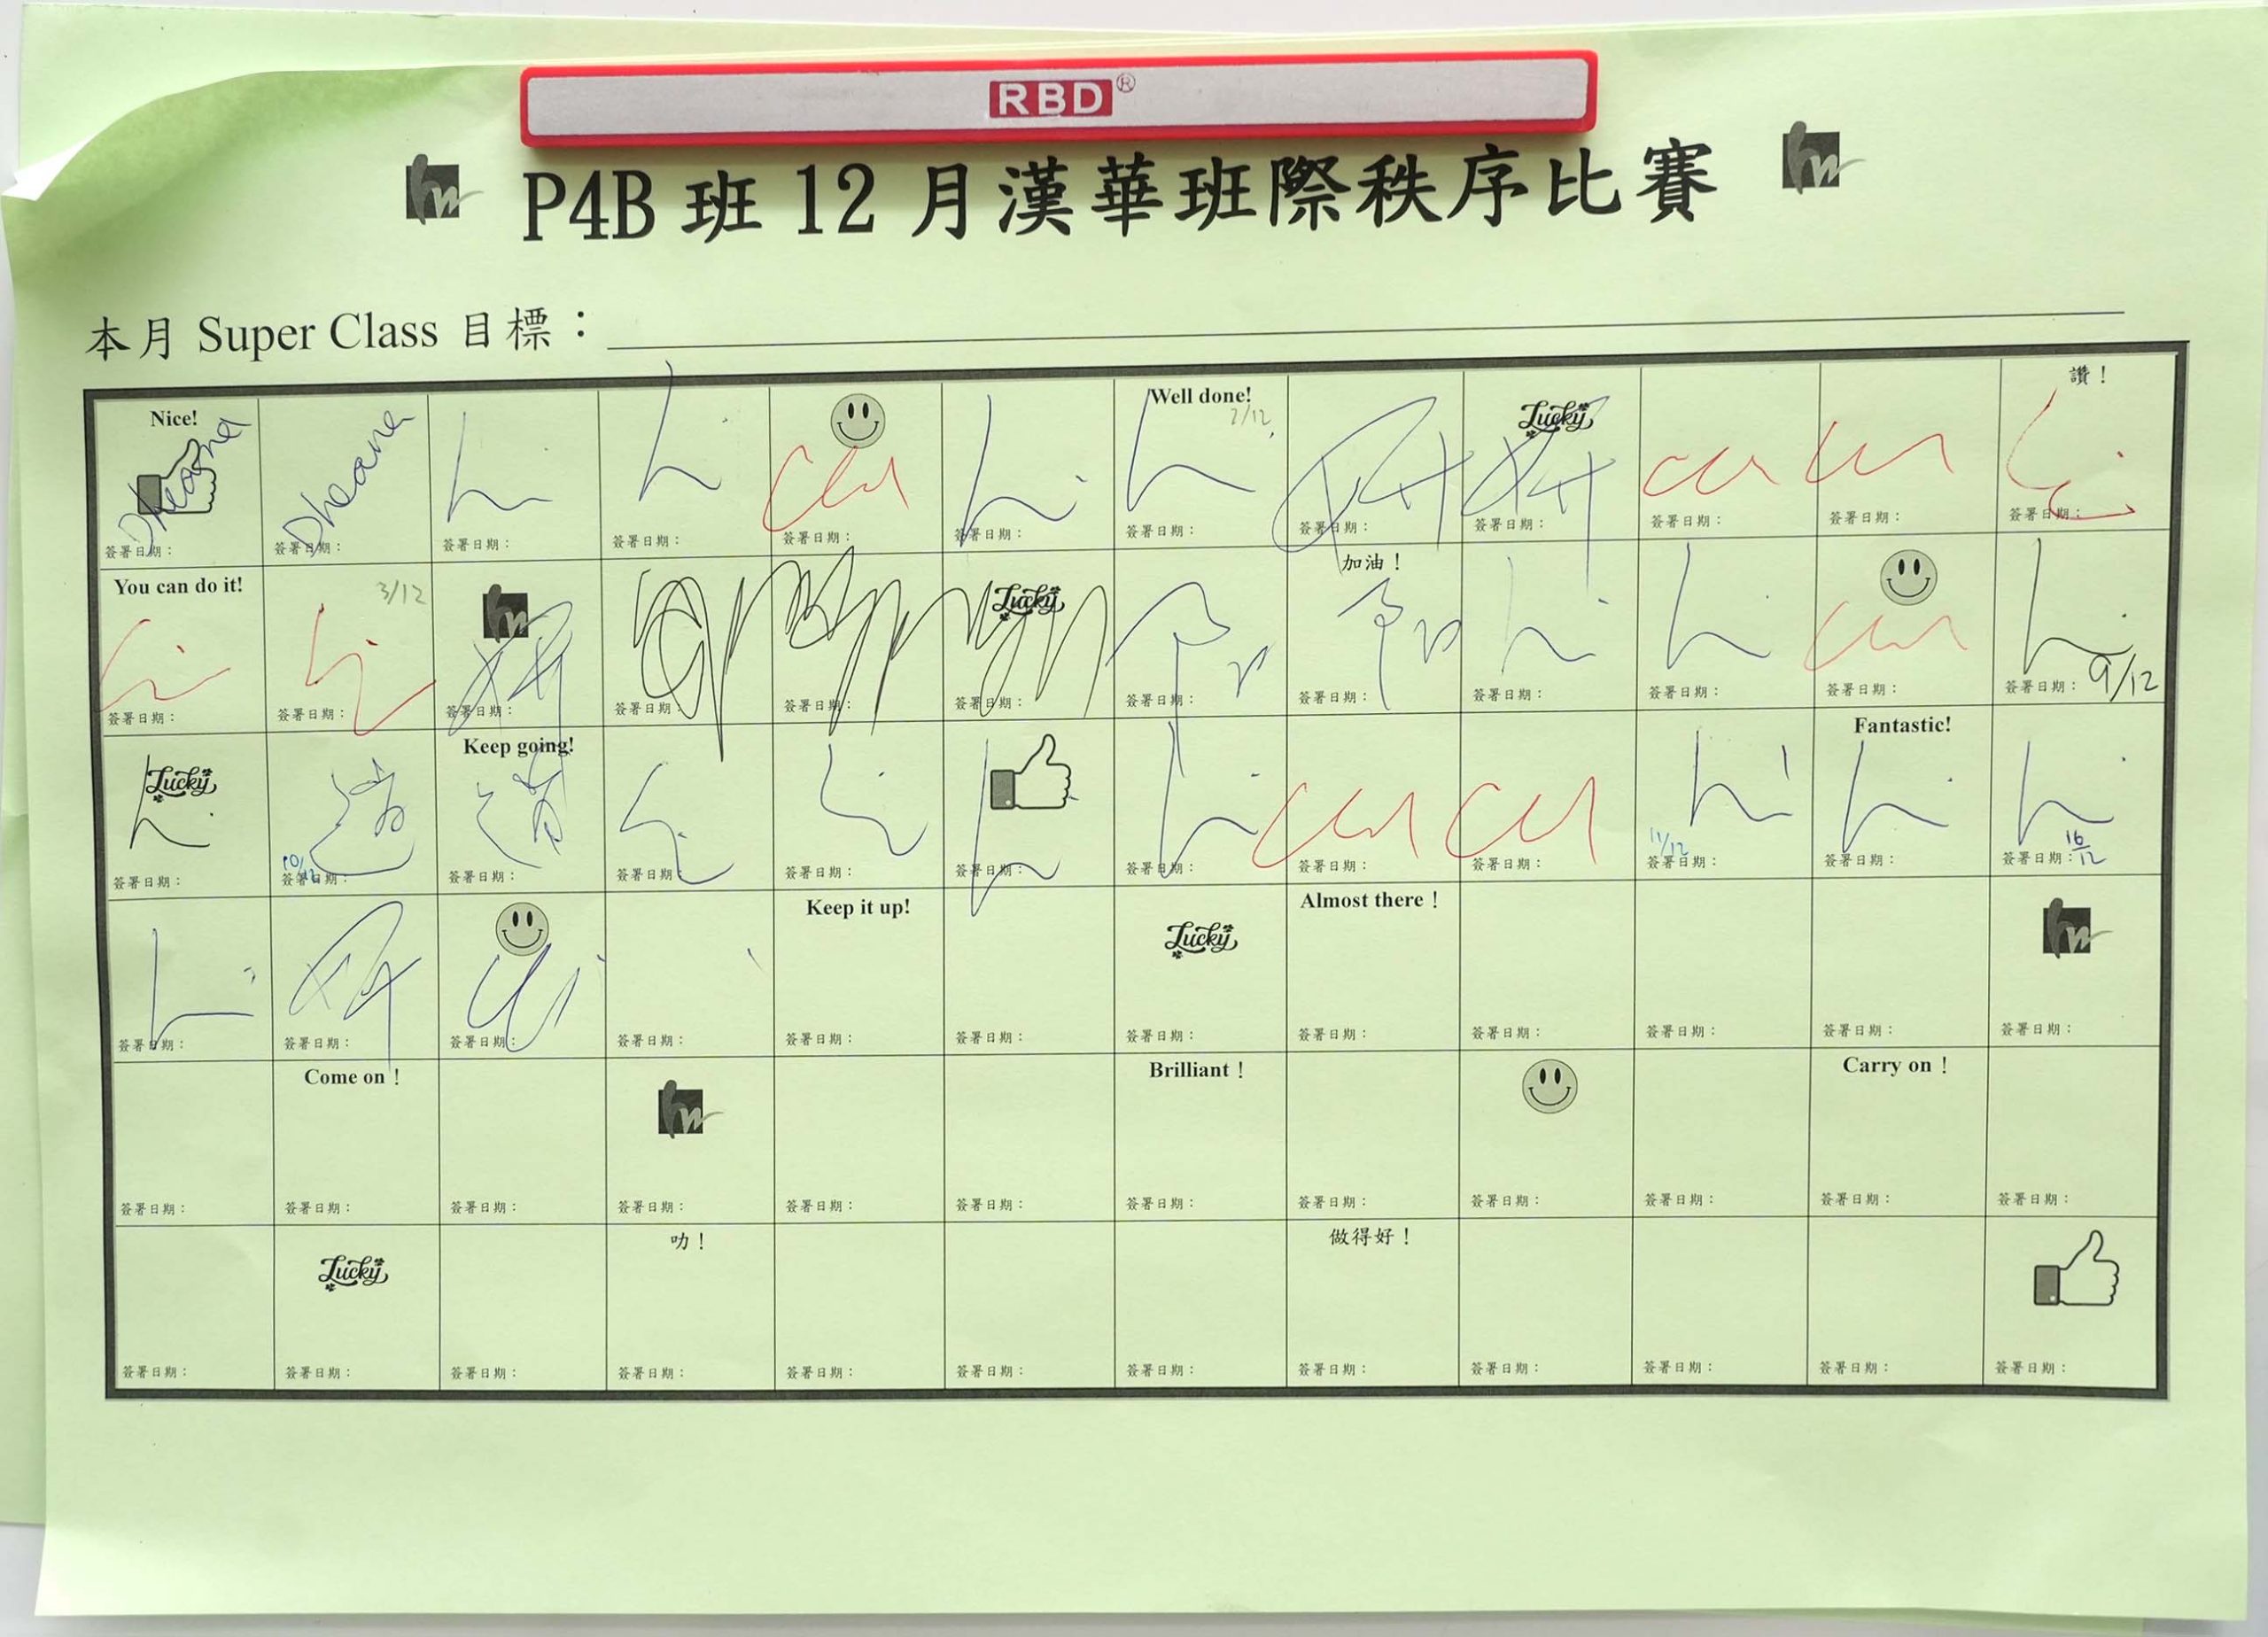 RBD®
P4B 班 12 月漢華班際秩序比賽
本月 Super Class 目標：
Nice! Well done! Lucky 讚！
Dheana Dheana 2/12
簽署日期： 簽署日期： 簽署日期： 簽署日期： 簽署日期： 簽署日期： 簽署日期： 簽署日期： 簽署日期： 簽署日期： 簽署日期： 簽署日期：
You can do it! 3/12 hw Lucky 加油！
簽署日期： 簽署日期： 簽署日期： 簽署日期： 簽署日期： 簽署日期： 簽署日期： 簽署日期： 簽署日期： 簽署日期： 簽署日期： 簽署日期： 9/12
Lucky Keep going! Fantastic!
10/12 11/12 16/12
簽署日期： 簽署日期： 簽署日期： 簽署日期： 簽署日期： 簽署日期： 簽署日期： 簽署日期： 簽署日期： 簽署日期： 簽署日期： 簽署日期：
Keep it up! Lucky Almost there！ hw
簽署日期： 簽署日期： 簽署日期： 簽署日期： 簽署日期： 簽署日期： 簽署日期： 簽署日期： 簽署日期： 簽署日期： 簽署日期： 簽署日期：
Come on！ hw Brilliant！ Carry on！
簽署日期： 簽署日期： 簽署日期： 簽署日期： 簽署日期： 簽署日期： 簽署日期： 簽署日期： 簽署日期： 簽署日期： 簽署日期： 簽署日期：
Lucky 叻！ 做得好！
簽署日期： 簽署日期： 簽署日期： 簽署日期： 簽署日期： 簽署日期： 簽署日期： 簽署日期： 簽署日期： 簽署日期： 簽署日期： 簽署日期：